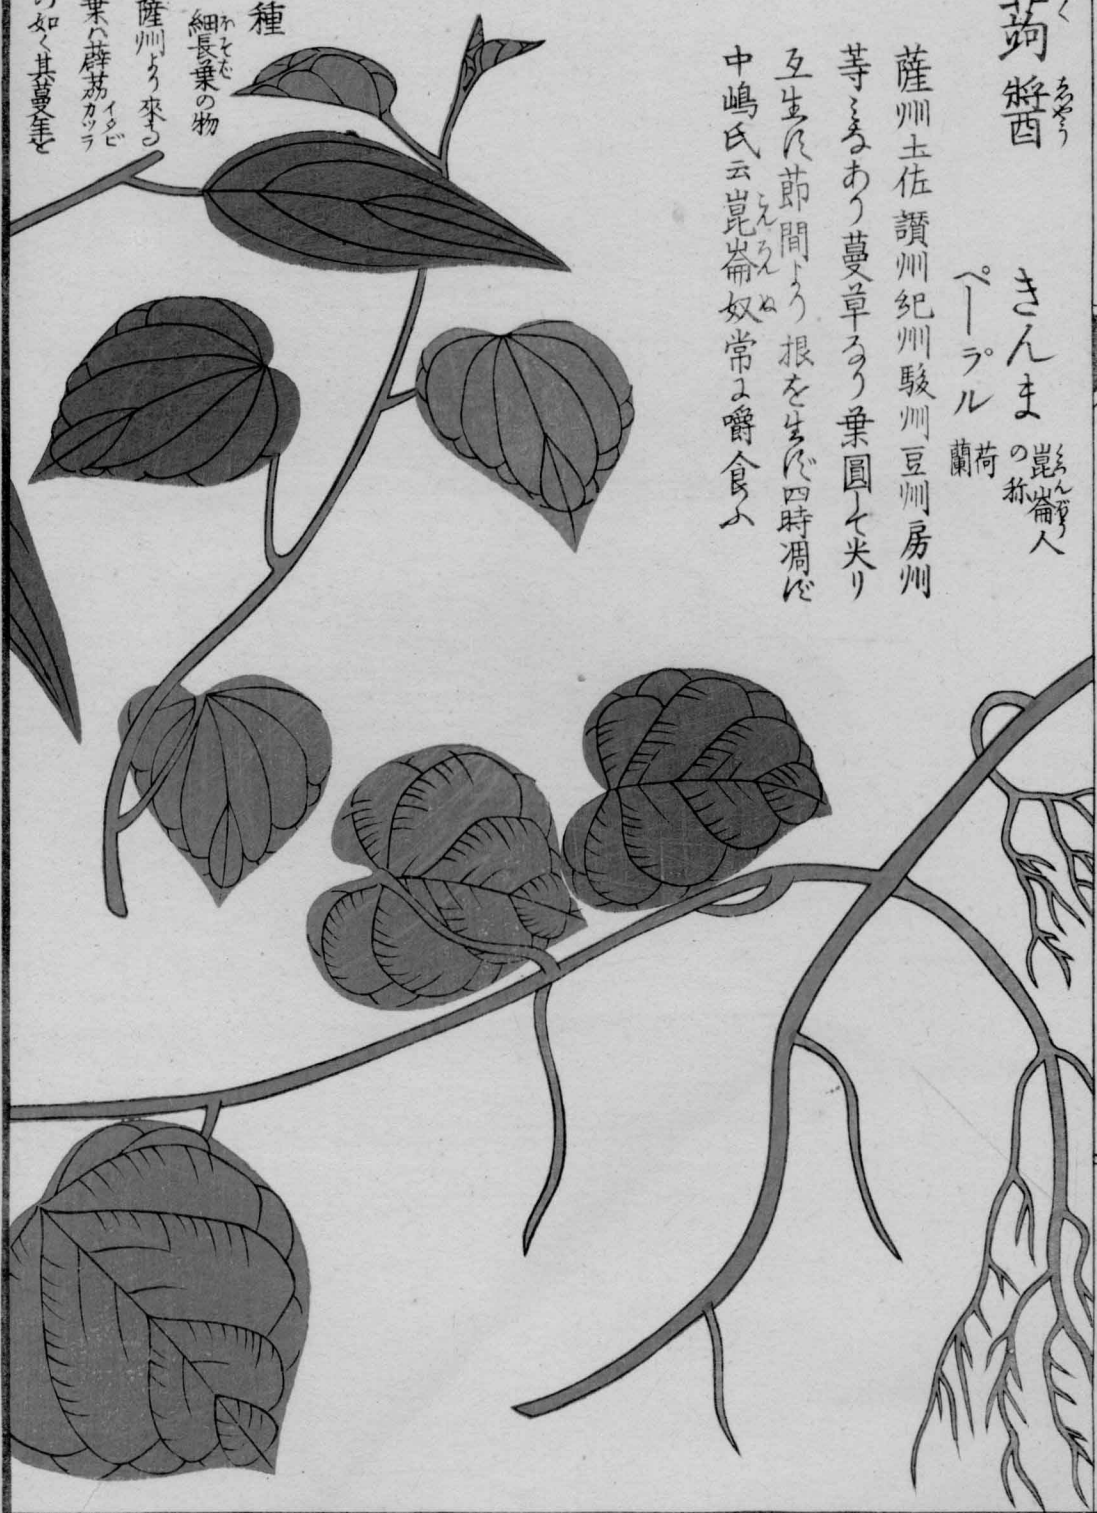 蒟醬
ゑやう
きんま
崑崙人
の称
ペープル
荷
蘭
薩州土佐讃州紀州駿州豆州房州
等にあり蔓草なり葉圓して尖り
互生ス節間より根を生ず四時凋ず
中嶋氏云崑崙奴常に嚼食ふ
こんろんぬ
種
細長葉の物
ほそば
薩州より來る
葉ハ薜茘
イタビ
カツラ
の如く其蔓生を